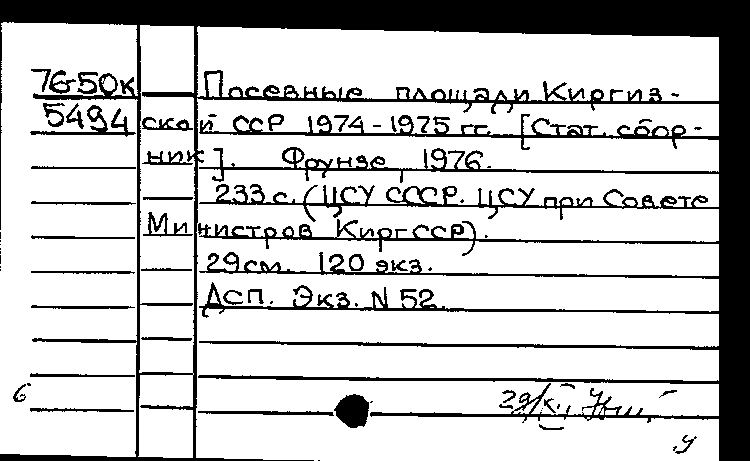 76-50к Посевные площади Киргиз-
5494 ской ССР 1974-1975 гг. [Стат. сбор-
ник]. Фрунзе, 1976.
233 с. (ЦСУ СССР. ЦСУ при Совете
Министров КиргССР).
29см. 120 экз.
ДСП. Экз. N 52.
6
у